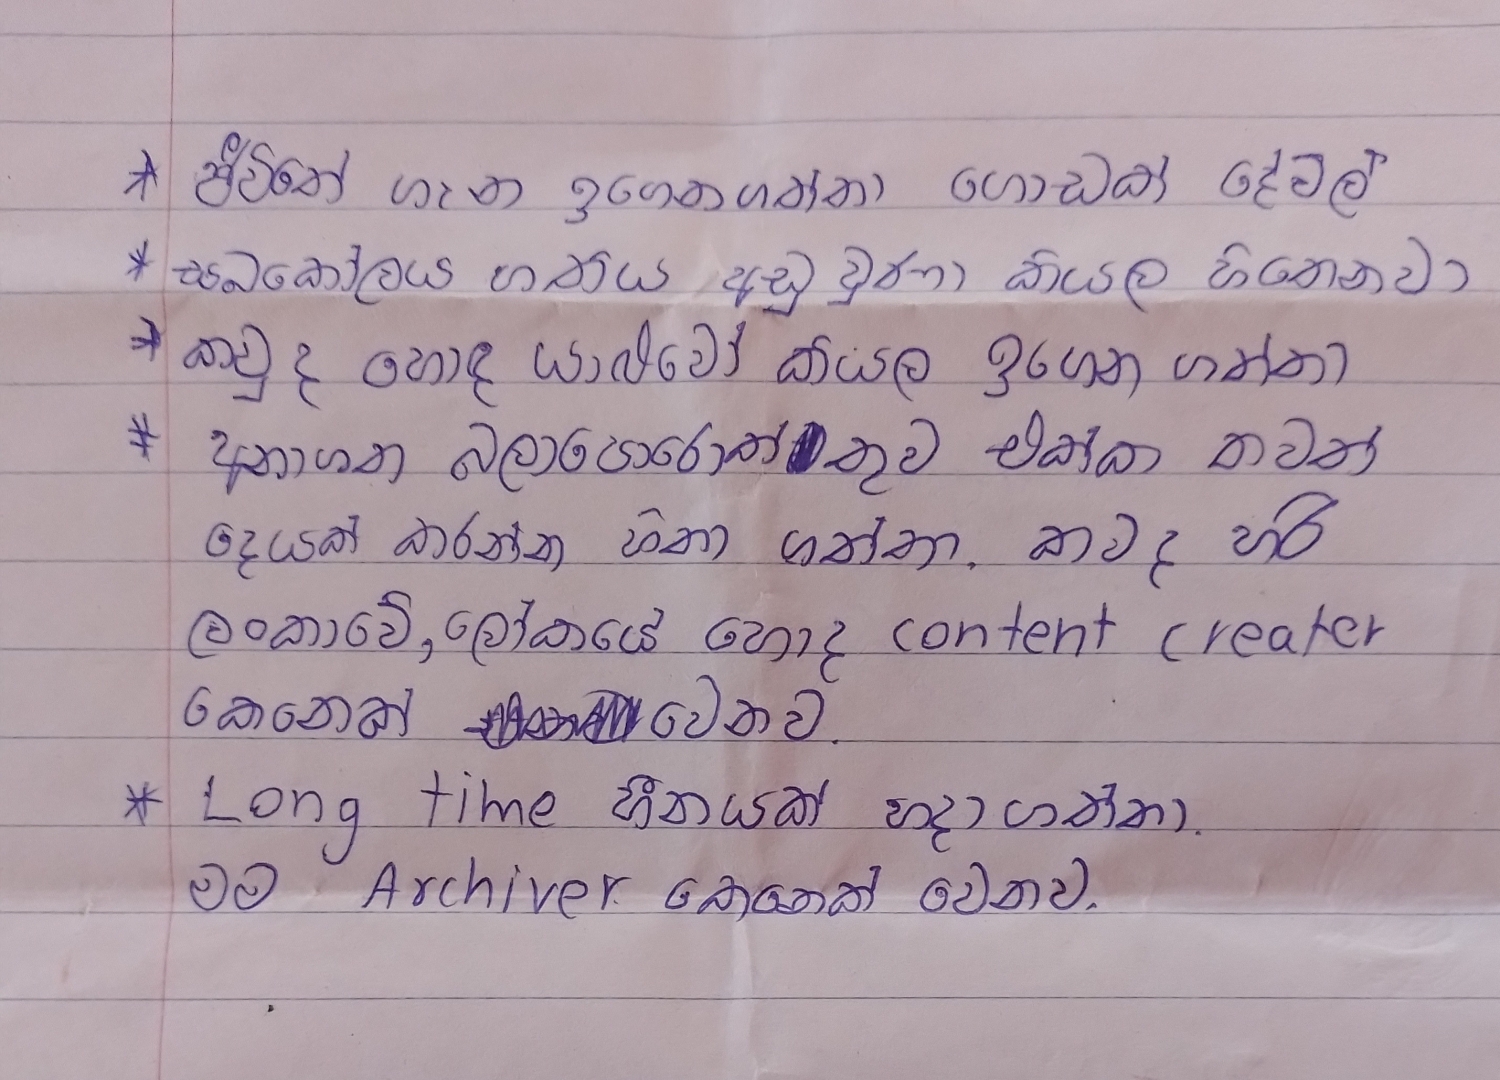 * ජීවිතේ ගැන ඉගෙනගත්තා ගොඩක් දේවල්
* සබකෝලය ගතිය අඩු වුණා කියල හිතෙනවා
* කවුද හොඳ යාළුවෝ කියල ඉගෙන ගත්තා
* අනාගත බලාපොරොත් තුව එක්ක තවත්
දෙයක් කරන්න හිතා ගත්තා. කවද හරි
ලංකාවේ, ලෝකයේ හොද content creater
කෙනෙක් වෙනව.
* Long time හීනයක් හදා ගත්තා.
මම Archiver කෙනෙක් වෙනව.